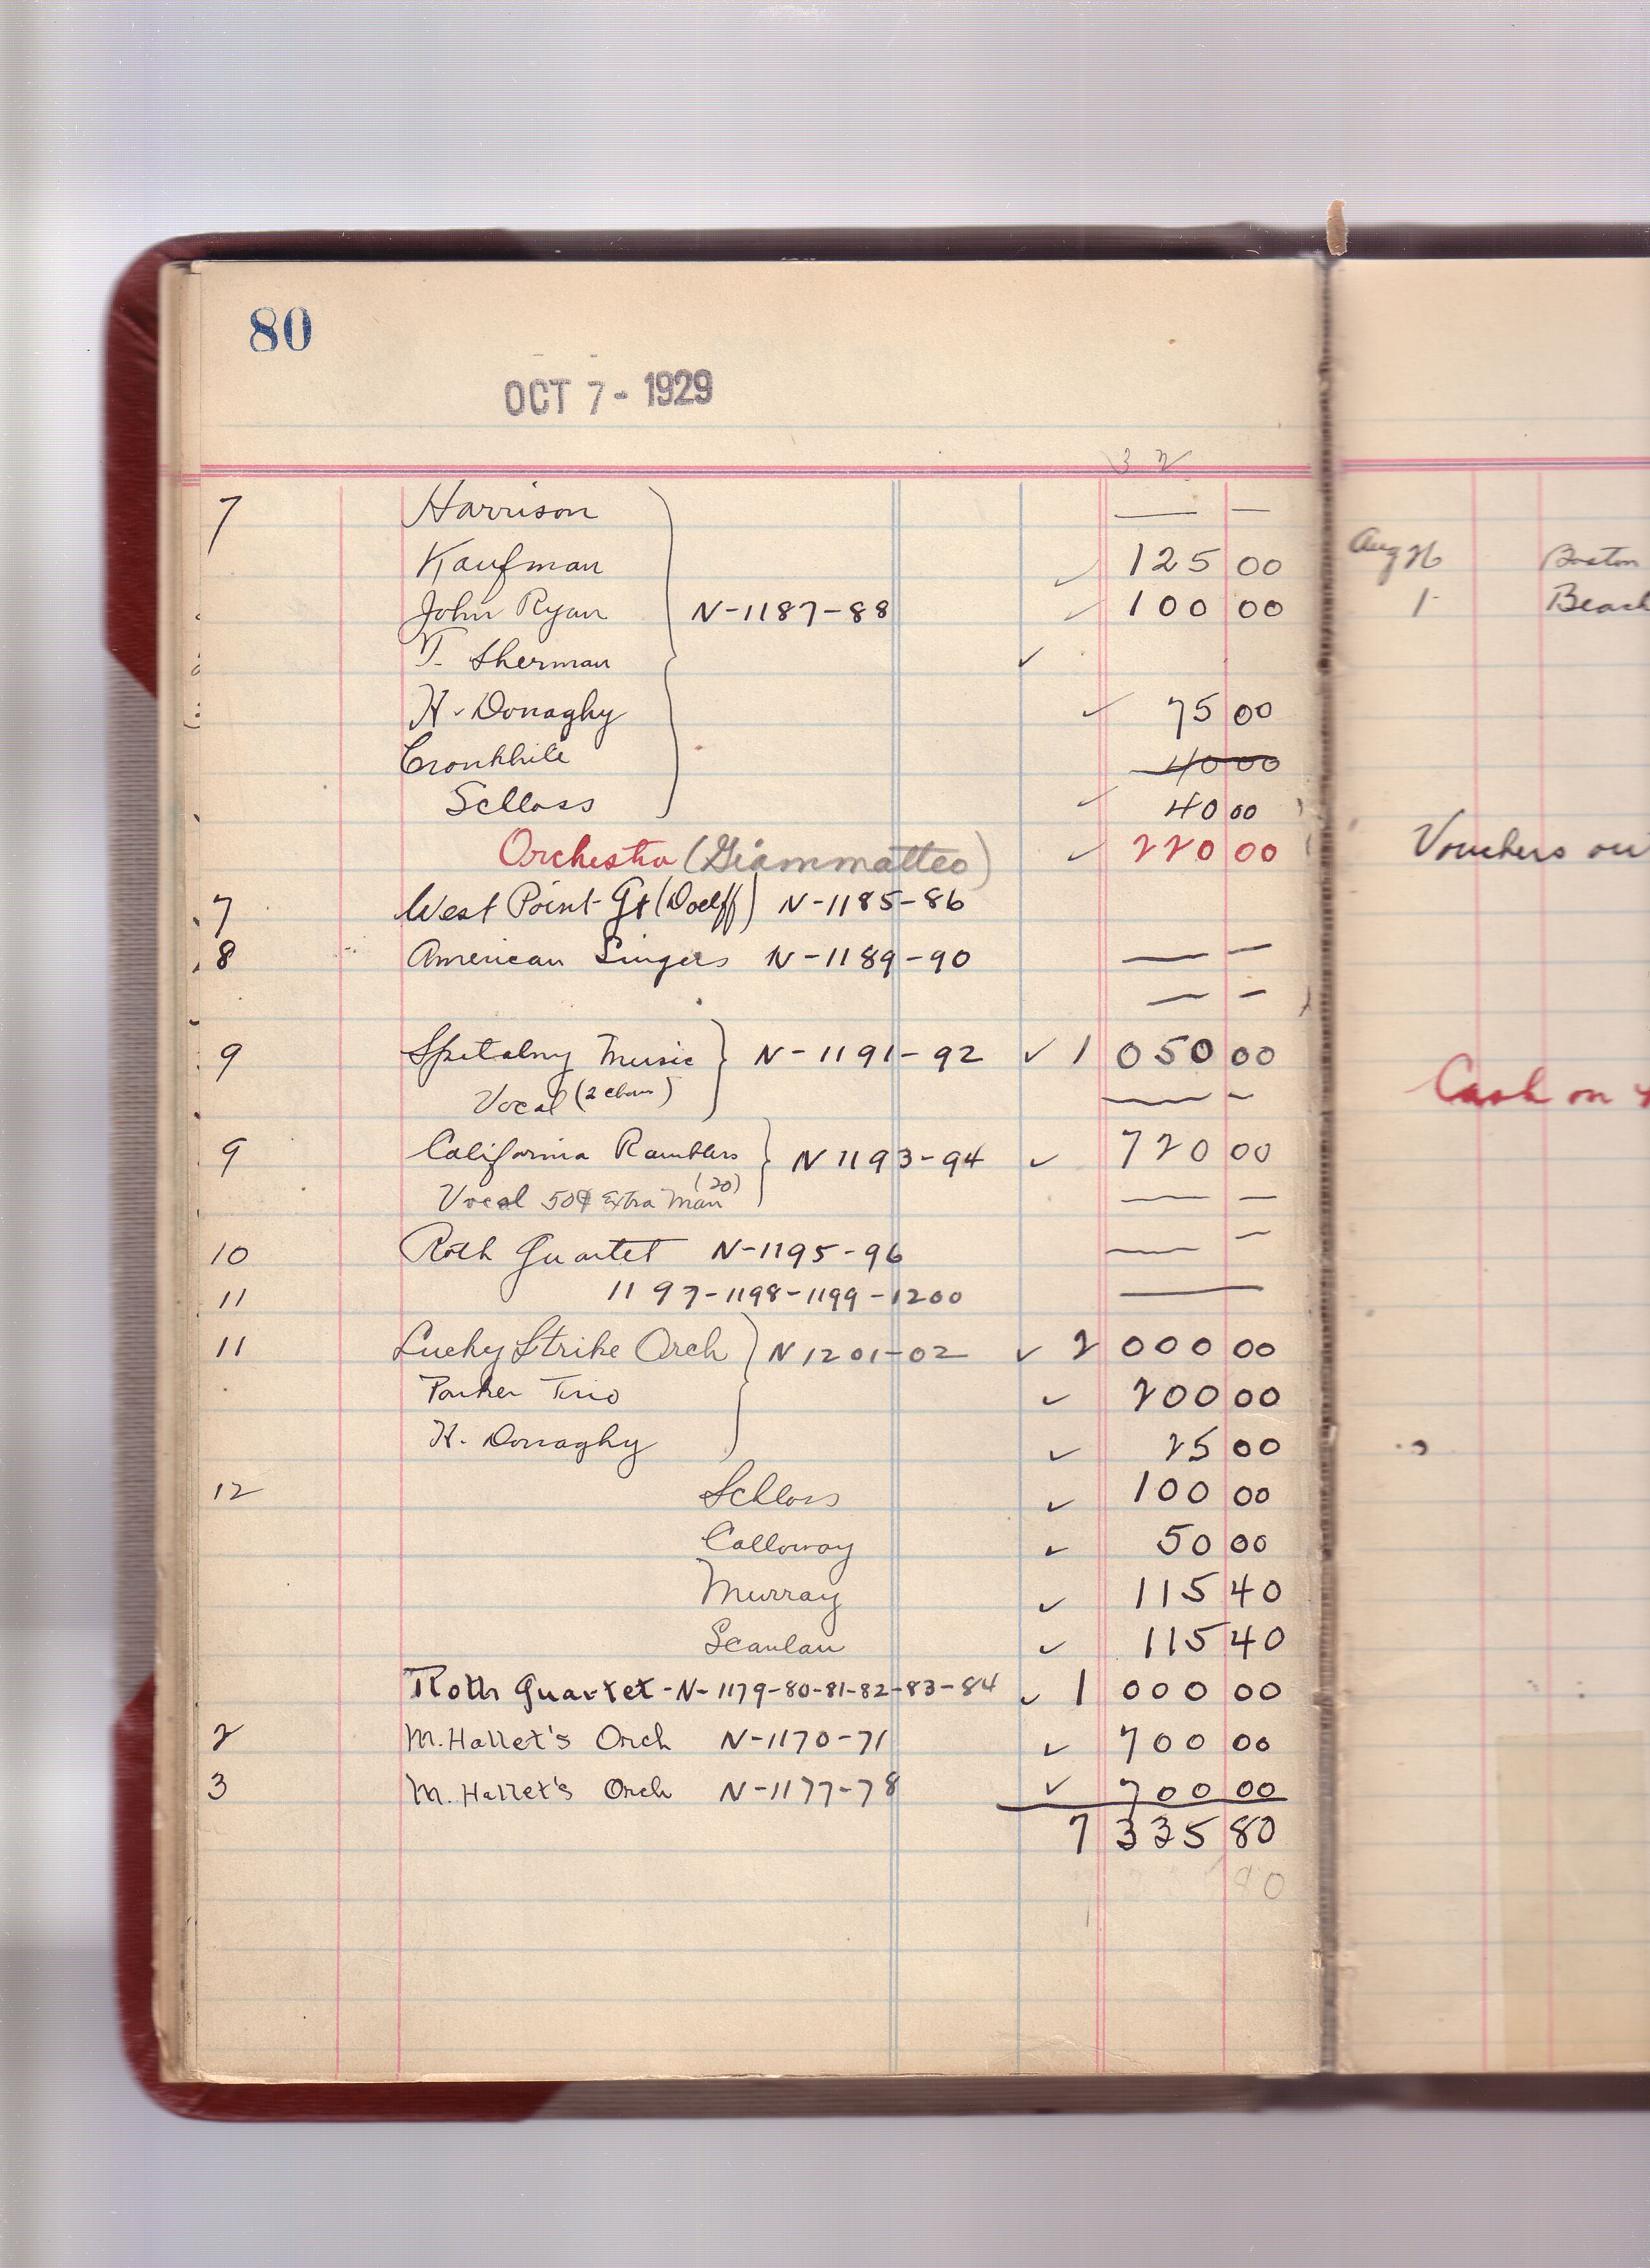 80
OCT 7 - 1929
32
7 Harrison — —
Kaufman ✓ 125 00
John Ryan N-1187-88 ✓ 100 00
T. Sherman ✓
H. Donaghy ✓ 75 00
Cronkhite 40 00
Schloss ✓ 40 00
Orchestra (Giammatteo) ✓ 220 00
7 West Point Gt (Doelff) N-1185-86
8 American Singers N-1189-90 — —
— —
9 Spitalny Music N-1191-92 ✓ 1 050 00
Vocal (2 chos) — —
9 California Ramblers N 1193-94 ✓ 720 00
Vocal 50¢ Extra Man (20) — —
10 Roth Quartet N-1195-96 — —
11 1197-1198-1199-1200 —
11 Lucky Strike Orch N 1201-02 ✓ 2 000 00
Parker Trio ✓ 200 00
H. Donaghy ✓ 25 00
12 Schloss ✓ 100 00
Calloway ✓ 50 00
Murray ✓ 115 40
Scanlan ✓ 115 40
Roth Quartet - N-1179-80-81-82-83-84 ✓ 1 000 00
2 M. Hallet's Orch N-1170-71 ✓ 700 00
3 M. Hallet's Orch N-1177-78 ✓ 700 00
7 335 80
80
Aug 26 Boston
1 Beach
Vouchers on
Cash on